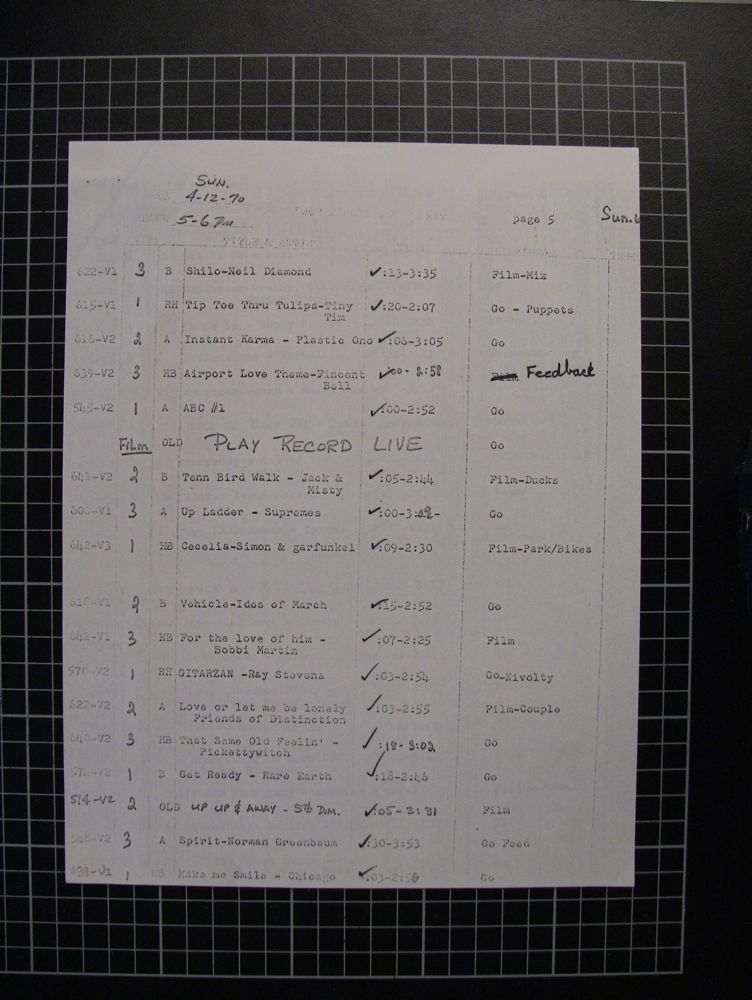 SUN.
4-12-70
5-6 PM
page 5 Sun.
TITLE & ARTIST
622-V1 3 B Shilo-Neil Diamond ✓:13-3:35 Film-Mix
615-V1 1 RH Tip Toe Thru Tulips-Tiny ✓:20-2:07 Go - Puppets
Tim
616-V2 2 A Instant Karma - Plastic Ono ✓:06-3:05 Go
639-V2 3 HB Airport Love Theme-Vincent ✓:00- 2:58 Feedback
Bell
545-V2 1 A ABC #1 ✓:00-2:52 Go
Film OLD PLAY RECORD LIVE Go
641-V2 2 B Tenn Bird Walk - Jack & ✓:05-2:44 Film-Ducks
Misty
600-V1 3 A Up Ladder - Supremes ✓:00-3:02- Go
642-V3 1 HB Cecelia-Simon & garfunkel ✓:09-2:30 Film-Park/Bikes
618-V1 2 B Vehicle-Ides of March ✓:15-2:52 Go
642-V1 3 HB For the love of him - ✓:07-2:25 Film
Bobbi Martin
570-V2 1 RH GITARZAN -Ray Stevens ✓:03-2:54 Go-Nivolty
622-V2 2 A Love or let me be lonely ✓:03-2:55 Film-Couple
Friends of Distinction
640-V2 3 HB That Same Old Feelin' - ✓:18-3:02 Go
Pickettywitch
574-V2 1 B Get Ready - Rare Earth ✓:18-2:46 Go
514-V2 2 OLD UP UP & AWAY - 5th DIM. ✓:05-2:31 Film
548-V2 3 A Spirit-Norman Greenbaum ✓:30-3:53 Go Feed
639-V1 1 HB Make me Smile - Chicago ✓:03-2:56 Go